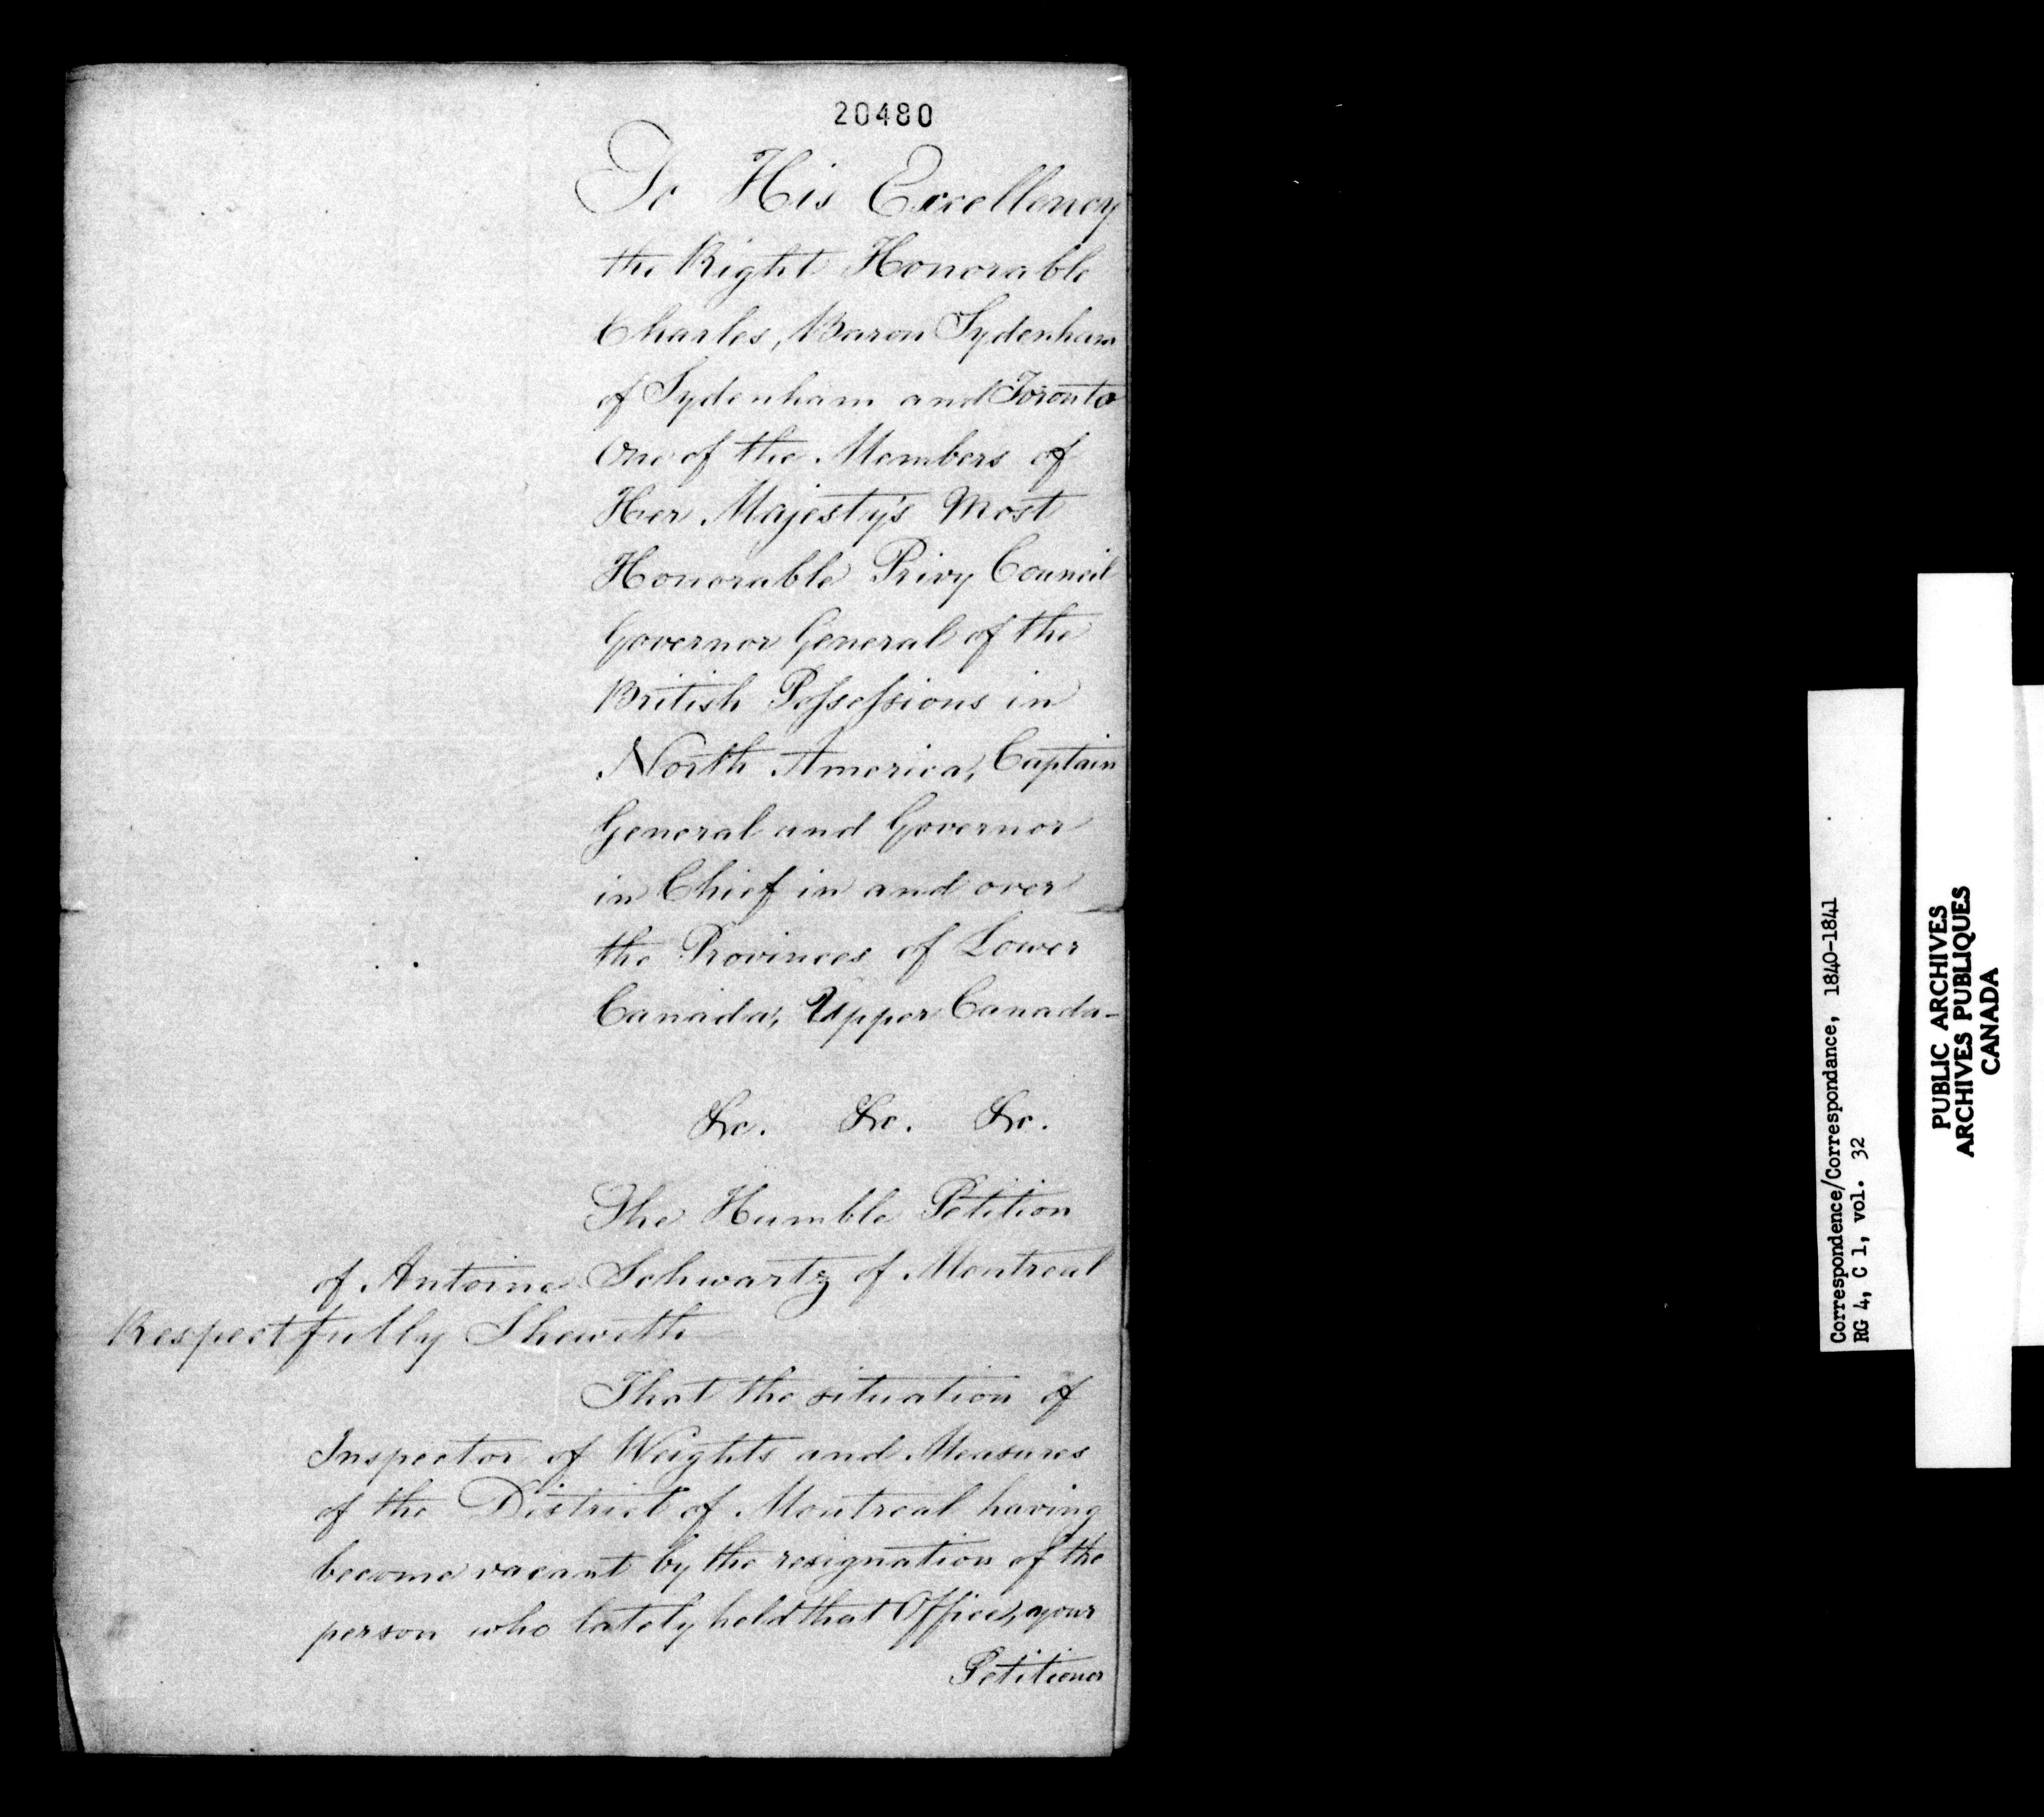 20480
To His Excellency
the Right Honorable
Charles, Baron Sydenham
of Sydenham and Toronto
One of the Members of
Her Majesty's Most
Honorable Privy Council
Governor General of the
British Possessions in
North America, Captain
General and Governor
in Chief in and over
the Provinces of Lower
Canada, Upper Canada-
&c. &c. &c.
The Humble Petition
of Antoine Schwartz of Montreal
Respectfully Sheweth
That the situation of
Inspector of Weights and Measures
of the District of Montreal having
become vacant by the resignation of the
person who lately held that Office, your
Petitioner
Correspondence/Correspondance, 1840-1841
RG 4, C 1, vol. 32
PUBLIC ARCHIVES
ARCHIVES PUBLIQUES
CANADA